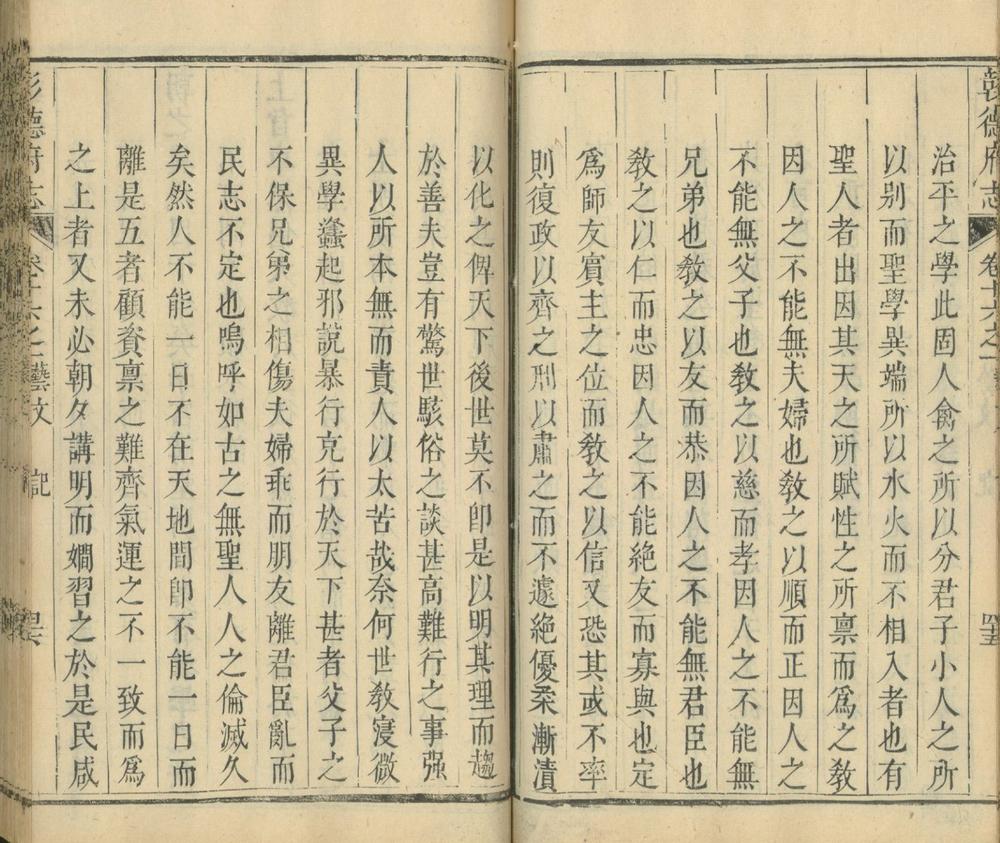 彰德府志 卷十六之一
治平之學此固人禽之所以分君子小人之所
以别而聖學異端所以水火而不相入者也有
聖人者出因其天之所賦性之所禀而爲之敎
因人之不能無夫婦也敎之以順而正因人之
不能無父子也敎之以慈而孝因人之不能無
兄弟也敎之以友而恭因人之不能無君臣也
敎之以仁而忠因人之不能絶友而寡與也定
爲師友賓主之位而敎之以信又恐其或不率
則復政以齊之刑以肅之而不遽絶優柔漸漬
以化之俾天下後世莫不卽是以明其理而趨
於善夫豈有驚世駭俗之談甚高難行之事强
人以所本無而責人以太苦哉奈何世敎寖微
異學蠭起邪說暴行充行於天下甚者父子之
不保兄弟之相傷夫婦乖而朋友離君臣亂而
民志不定也嗚呼如古之無聖人人之倫滅久
矣然人不能一日不在天地間卽不能一日而
離是五者顧賚禀之難齊氣運之不一致而爲
之上者又未必朝夕講明而嫺習之於是民咸
彰德府志 藝文 記